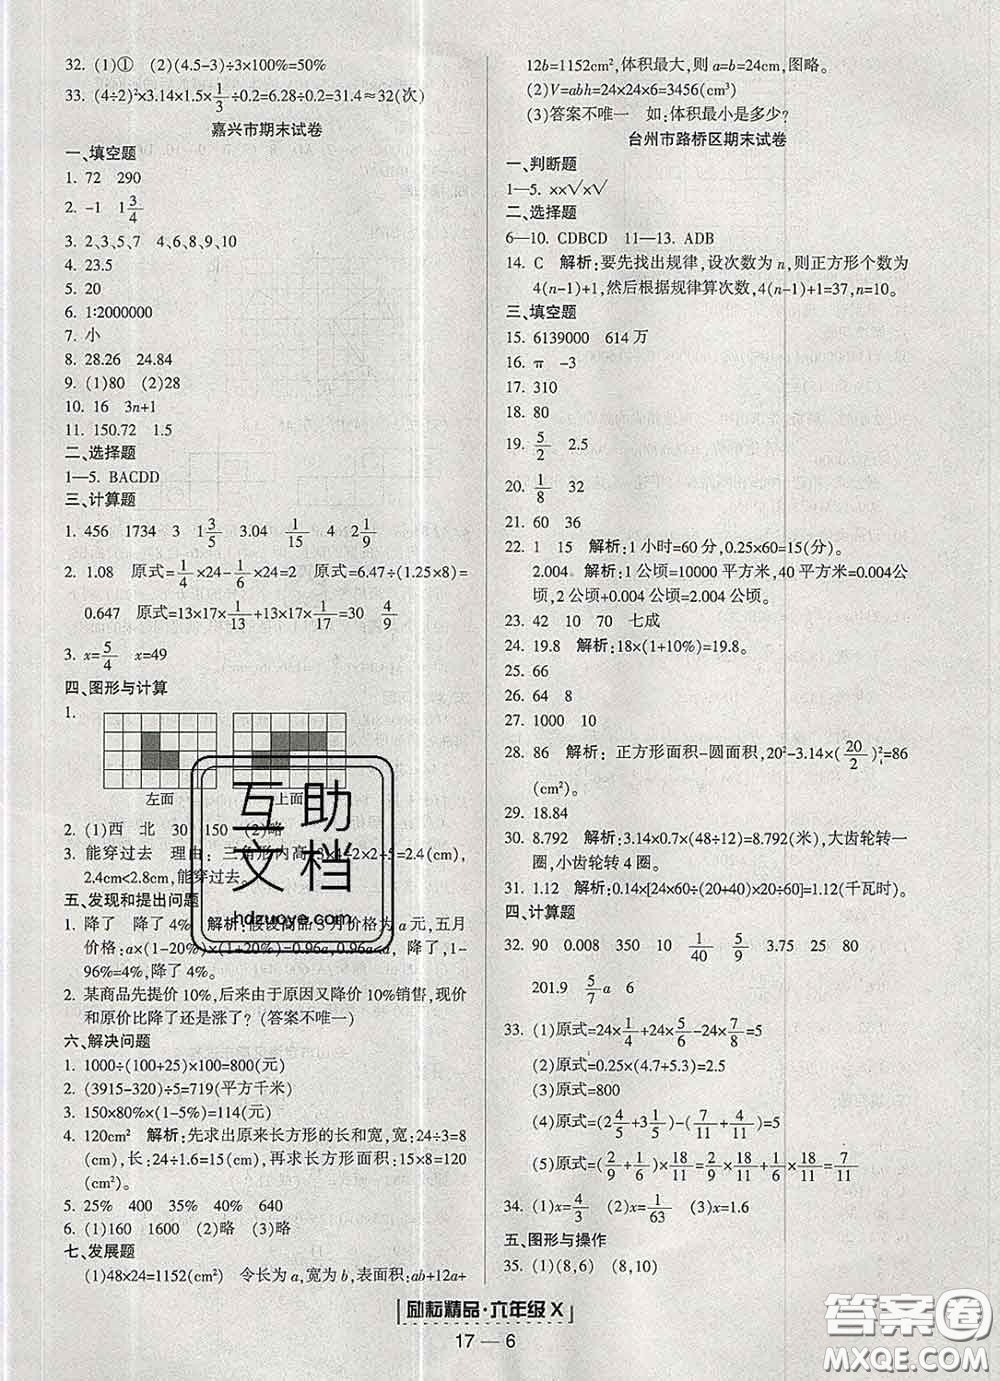 32. (1)① (2)(4.5-3)÷3×100%=50%
33. (4÷2)²×3.14×1.5×1/3÷0.2=6.28÷0.2=31.4≈32(次)
嘉兴市期末试卷
一、填空题
1. 72 290
2. -1 1 3/4
3. 2、3、5、7 4、6、8、9、10
4. 23.5
5. 20
6. 1:2000000
7. 小
8. 28.26 24.84
9. (1)80 (2)28
10. 16 3n+1
11. 150.72 1.5
二、选择题
1—5. BACDD
三、计算题
1. 456 1734 3 1 3/5 3.04 1/15 4 2 1/9
2. 1.08 原式=1/4×24-1/6×24=2 原式=6.47÷(1.25×8)=
0.647 原式=13×17×1/13+13×17×1/17=30 4/9
3. x=5/4 x=49
四、图形与计算
1.
左面 上面
2. (1)西 北 30 150 (2)略
3. 能穿过去 理由:三角形内高:3×4÷2×2÷5=2.4(cm),
2.4cm<2.8cm,能穿过去。
五、发现和提出问题
1. 降了 降了4% 解析:假设商品3月价格为a元,五月
价格:a×(1-20%)×(1+20%)=0.96a,0.96a<a, 1-
96%=4%,降了4%。
2. 某商品先提价10%,后来由于原因又降价10%销售,现价
和原价比降了还是涨了?(答案不唯一)
六、解决问题
1. 1000÷(100+25)×100=800(元)
2. (3915-320)÷5=719(平方千米)
3. 150×80%×(1-5%)=114(元)
4. 120cm² 解析:先求出原来长方形的长和宽,宽:24÷3=8
(cm),长:24÷1.6=15(cm),再求长方形面积:15×8=120
(cm²)
5. 25% 400 35% 40% 640
6. (1)160 1600 (2)略 (3)略
七、发展题
(1)48×24=1152(cm²) 令长为a,宽为b,表面积:ab+12a+
12b=1152cm²,体积最大,则a=b=24cm,图略。
(2)V=abh=24×24×6=3456(cm³)
(3)答案不唯一 如:体积最小是多少?
台州市路桥区期末试卷
一、判断题
1—5. ××√×√
二、选择题
6—10. CDBCD 11—13. ADB
14. C 解析:要先找出规律,设次数为n,则正方形个数为
4(n-1)+1,然后根据规律算次数,4(n-1)+1=37,n=10。
三、填空题
15. 6139000 614万
16. π -3
17. 310
18. 80
19. 5/2 2.5
20. 1/8 32
21. 60 36
22. 1 15 解析:1小时=60分,0.25×60=15(分)。
2.004 解析:1公顷=10000平方米,40平方米=0.004公
顷,2公顷+0.004公顷=2.004公顷。
23. 42 10 70 七成
24. 19.8 解析:18×(1+10%)=19.8。
25. 66
26. 64 8
27. 1000 10
28. 86 解析:正方形面积-圆面积,20²-3.14×(20/2)²=86
(cm²)。
29. 18.84
30. 8.792 解析:3.14×0.7×(48÷12)=8.792(米),大齿轮转一
圈,小齿轮转4圈。
31. 1.12 解析:0.14×[24×60÷(20+40)×20÷60]=1.12(千瓦时)。
四、计算题
32. 90 0.008 350 10 1/40 5/9 3.75 25 80
201.9 5/7a 6
33. (1)原式=24×1/4+24×5/6-24×7/8=5
(2)原式=0.25×(4.7+5.3)=2.5
(3)原式=800
(4)原式=(2 4/5+3 1/5)×(7/11+4/11)=6
(5)原式=(2/9+1/6)×18/11=2/9×18/11+1/6×18/11=7/11
34. (1)x=4/3 (2)x=1/63 (3)x=1.6
五、图形与操作
35. (1)(8,6) (8,10)
励耘精品·六年级X
17 — 6
互助
文档
hdzuoye.com
答案圈
MXQE.COM